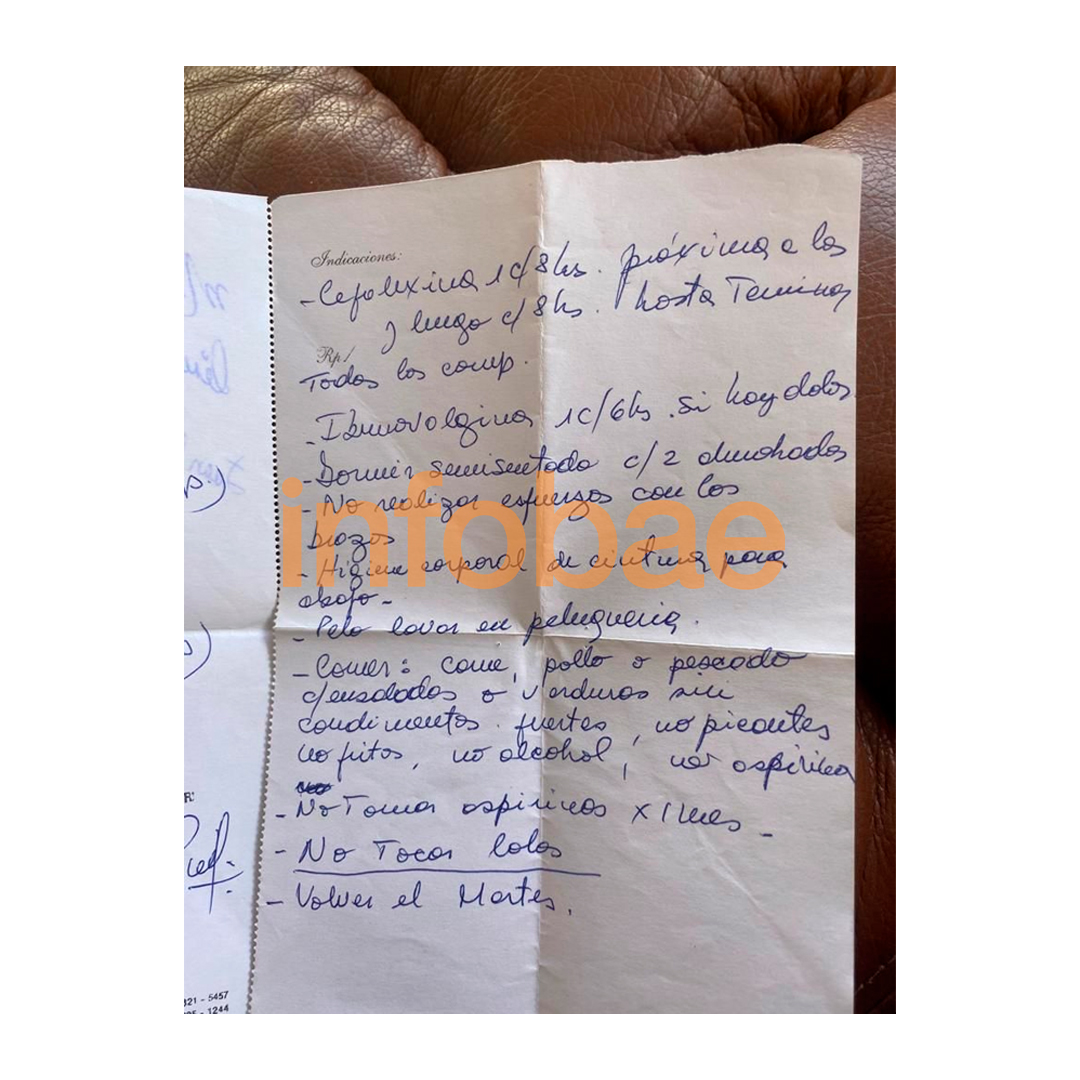 Indicaciones:
- Cefalexina 1 c/8 hs. próxima a las
y luego c/8 hs. hasta Terminar
Rp/
Todos los comp.
- Ibunovalgina 1c/6hs. si hay dolor
- Dormir semisentada c/2 almohadas
- No realizar esfuerzos con los
brazos
- Higiene corporal de cintura para
abajo -
- Pelo lavar en peluqueria.
- Comer: carne, pollo o pescado
c/ensaladas o verduras sin
condimentos fuertes, no picantes
no fritos, no alcohol, no aspirina
- No Tomar aspirinas x 1 mes -
- No Tocar lolas
- Volver el Martes.
infobae
321 - 5457
- 1244